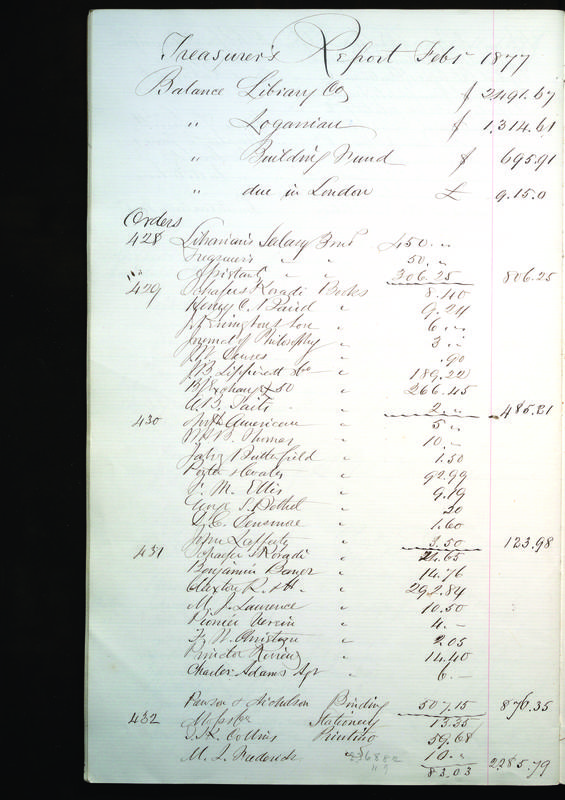 Treasurer's Report Feby 1877
Balance Library Co $ 2491.67
" Loganian $ 1,314.61
" Building Fund $ 695.91
" due in London £ 9.15.0
Orders
428 Librarian's Salary 3 mos 450. "
Treasurer's " " 50. "
Assistants " " 306.25 806.25
429 Schafer & Koradi Books 8.40
Henry C. Baird " 9.24
& Son " 6 "
Journal of Philosophy " 3 "
" .90
J. B. Lippincott & Co " 189.22
" 266.45
" 2. " 485.21
430 North American " 5 "
Thomas " 10. –
Butterfield " 1.50
Porter & Coates " 92.99
M. Ellis " 9.19
George " 20
" 1.60
John Lafferty " 3.50 123.98
431 Schaefer & Koradi " 21.65
Benjamin " 14.76
Claxton R. & H. " 292.84
M. J. Lawrence " 10.50
Pionier Verein " 4. –
" 2.05
Princeton Review " 14.40
Charles Adams Agt " 6. –
Pawson & Nicholson Binding 507.15 876.35
432 Stationery 13.35
T. K. Collins Printing 59.68
M. L. Frederick " 10. "
83.03 2285.79